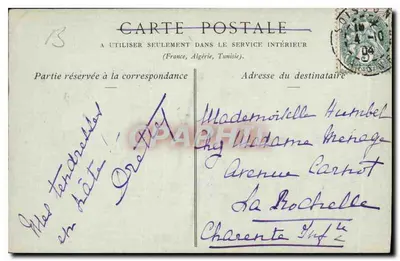 B
CARTE POSTALE
A UTILISER SEULEMENT DANS LE SERVICE INTÉRIEUR
(France, Algérie, Tunisie).
Partie réservée à la correspondance
Adresse du destinataire
18
4 -10
04
Mes tendresses
en hâte !
Mademoiselle Humbel
chez Madame Menage
Avenue Carnot
La Rochelle
Charente Infre
CPARAMA